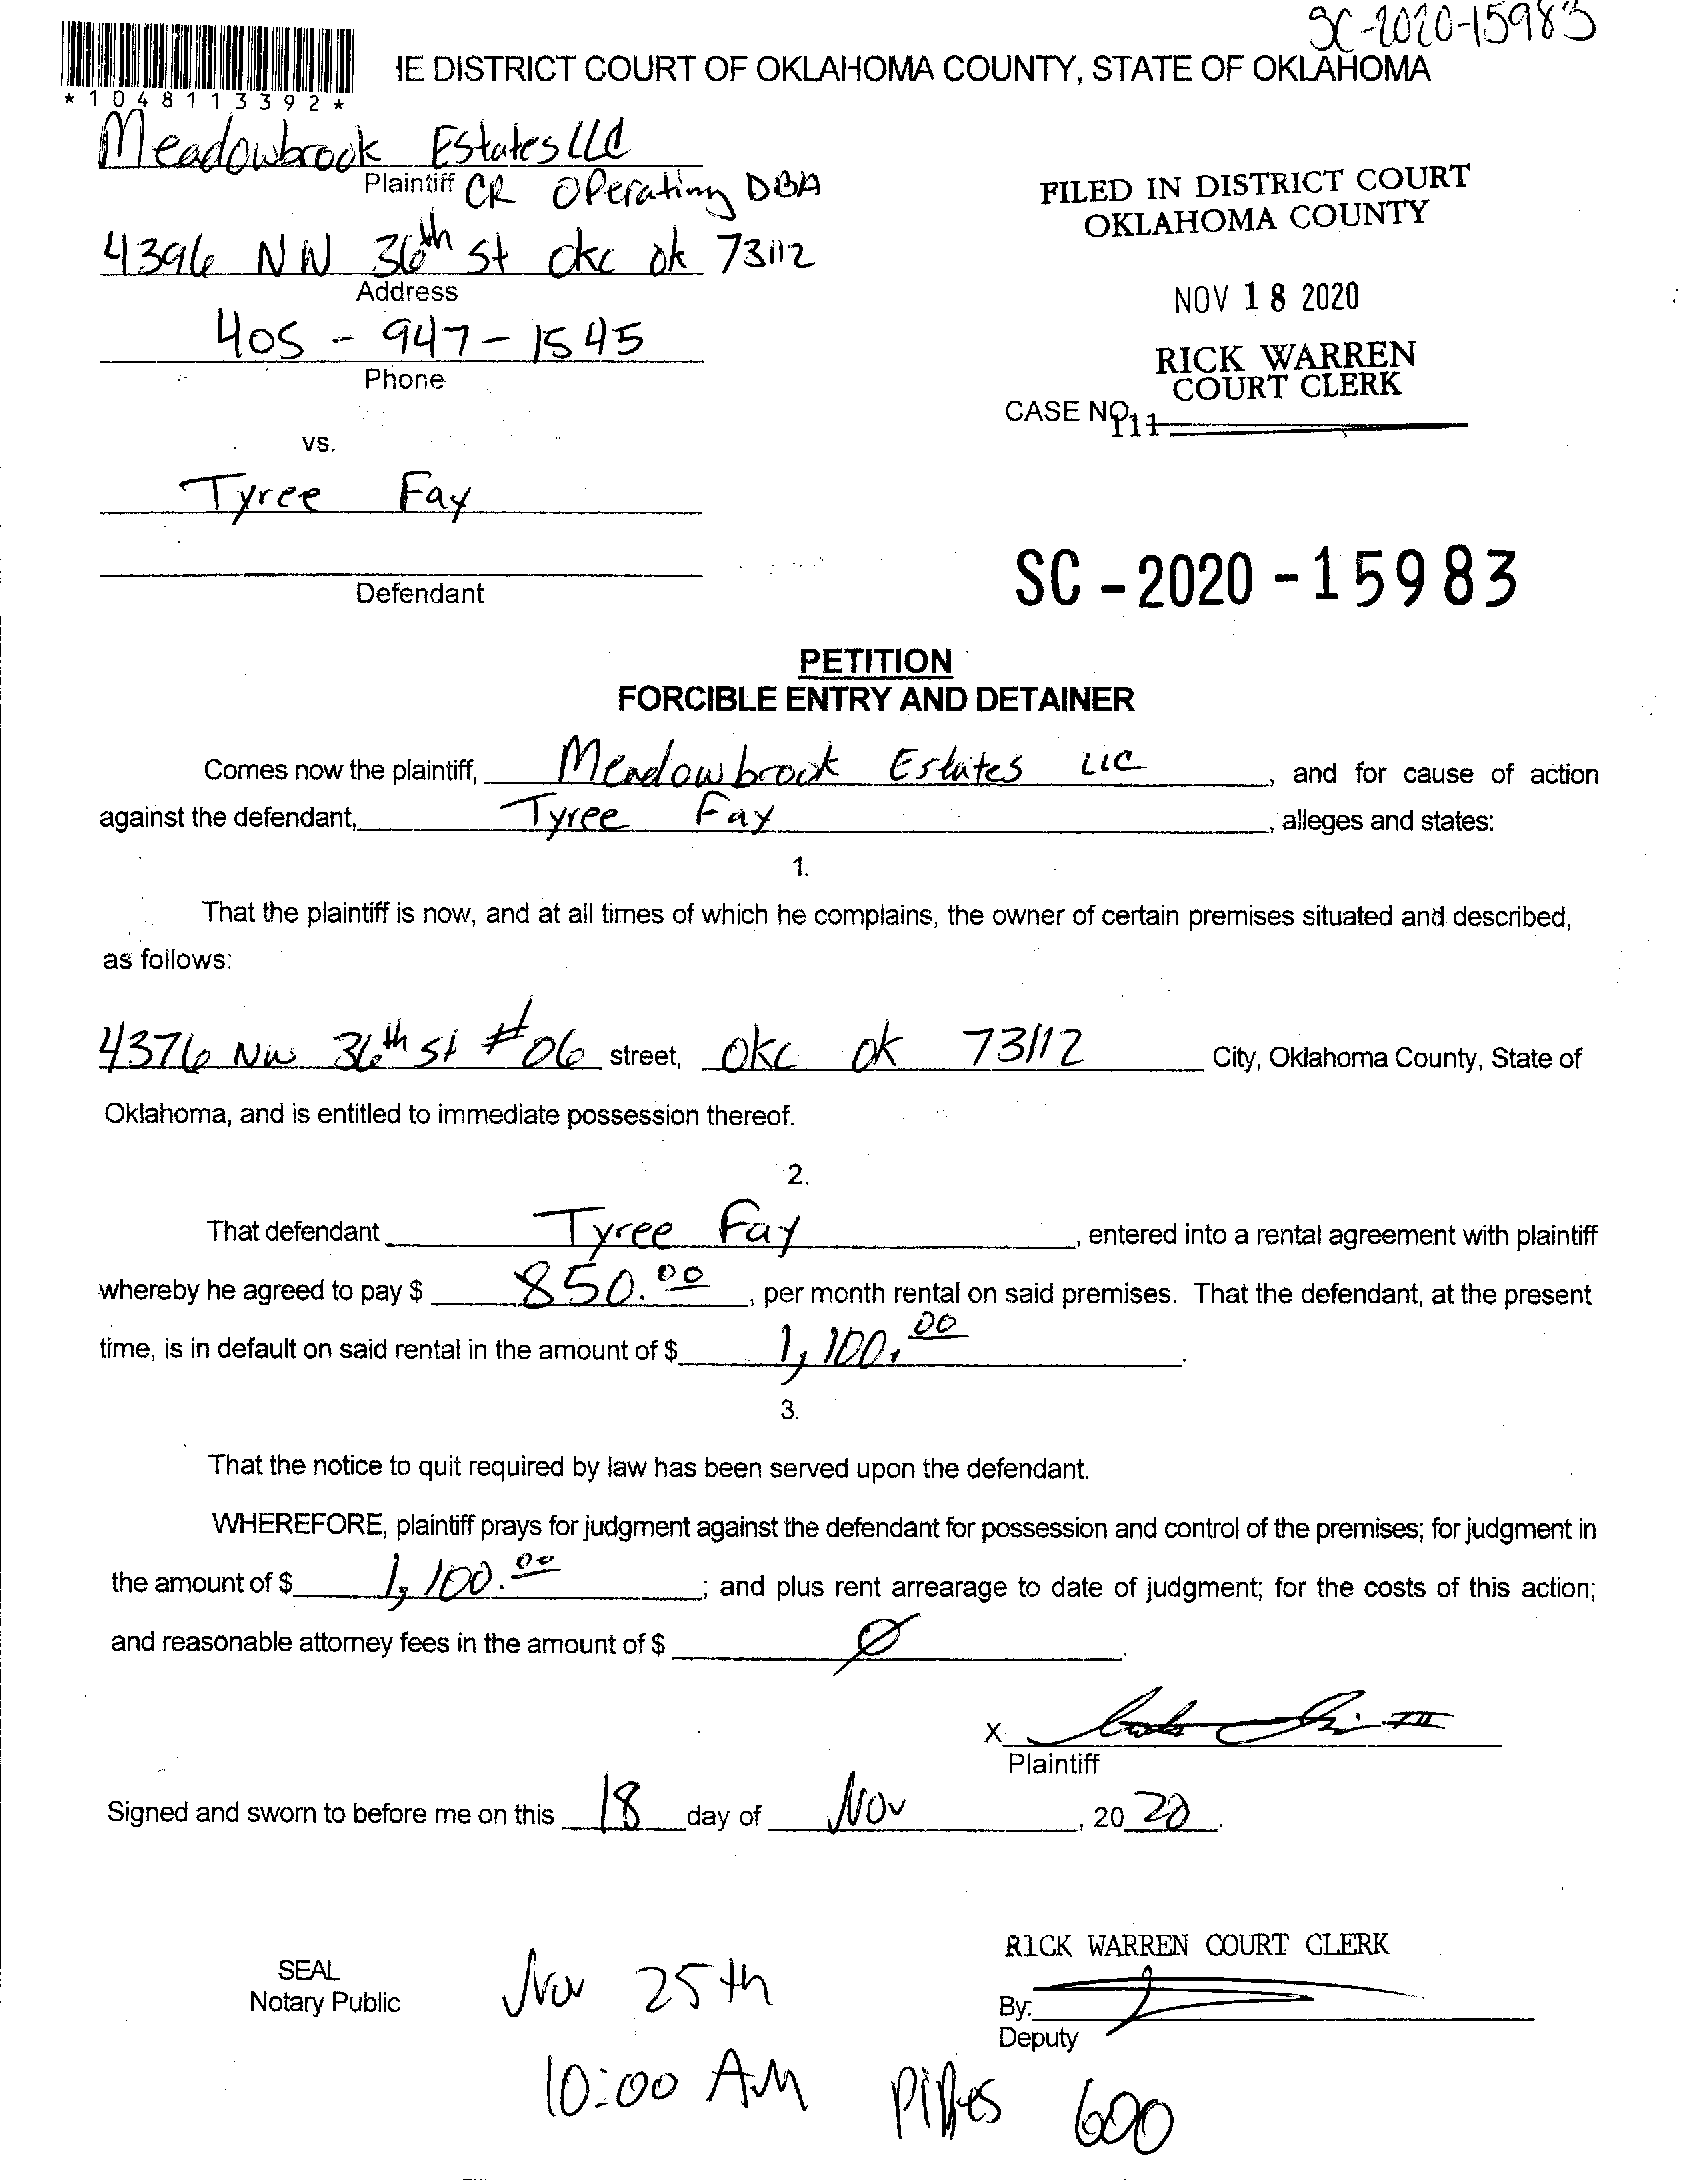 SC-2020-15983
IE DISTRICT COURT OF OKLAHOMA COUNTY, STATE OF OKLAHOMA
*1048113392*
Meadowbrook Estates LLC
Plaintiff CR Operating DBA
4396 NW 36th St okc ok 73112
Address
405-947-1545
Phone
FILED IN DISTRICT COURT
OKLAHOMA COUNTY
NOV 18 2020
RICK WARREN
COURT CLERK
CASE NO.
111
vs.
Tyree Fay
Defendant
SC-2020-15983
PETITION
FORCIBLE ENTRY AND DETAINER
Comes now the plaintiff, Meadowbrook Estates LLC, and for cause of action
against the defendant, Tyree Fay, alleges and states:
1.
That the plaintiff is now, and at all times of which he complains, the owner of certain premises situated and described,
as follows:
4376 NW 36th St #06 street, OKC OK 73112 City, Oklahoma County, State of
Oklahoma, and is entitled to immediate possession thereof.
2.
That defendant Tyree Fay, entered into a rental agreement with plaintiff
whereby he agreed to pay $ 850.00, per month rental on said premises. That the defendant, at the present
time, is in default on said rental in the amount of $ 1,100.00.
3.
That the notice to quit required by law has been served upon the defendant.
WHEREFORE, plaintiff prays for judgment against the defendant for possession and control of the premises; for judgment in
the amount of $ 1,100.00; and plus rent arrearage to date of judgment; for the costs of this action;
and reasonable attorney fees in the amount of $ Ø.
X III
Plaintiff
Signed and sworn to before me on this 18 day of Nov, 2020.
RICK WARREN COURT CLERK
SEAL
Notary Public
Nov 25th
By:
Deputy
10:00 AM
600